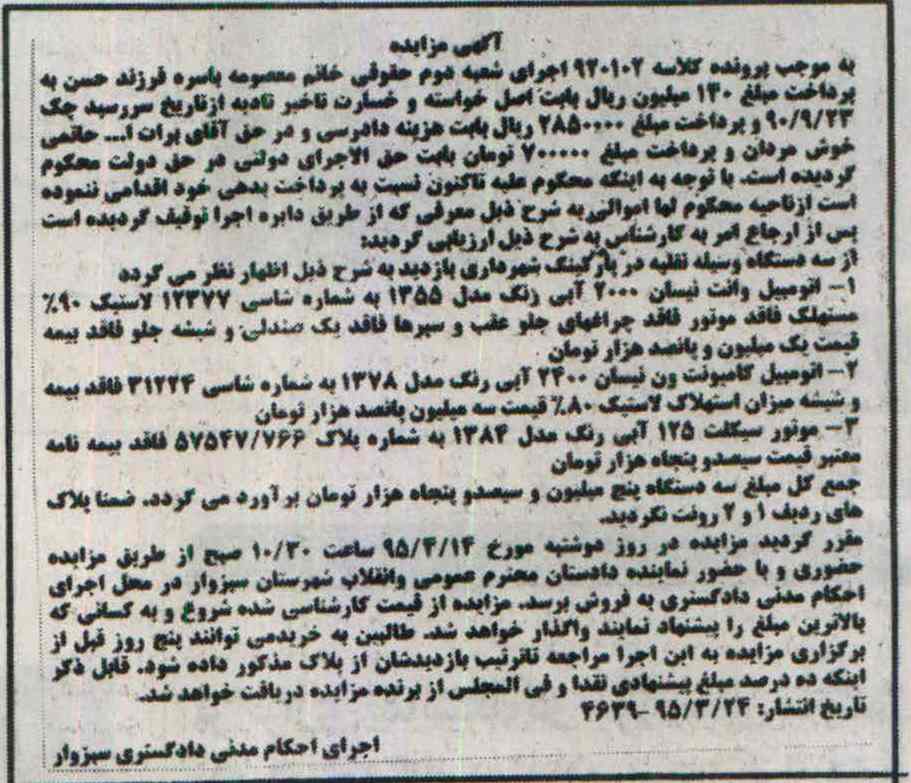 آگهی مزایده
به موجب پرونده کلاسه ۹۲۰۱۰۲ اجرای شعبه دوم حقوقی خانم معصومه یاسره فرزند حسن به
پرداخت مبلغ ۱۳۰ میلیون ریال بابت اصل خواسته و خسارت تاخیر تادیه ازتاریخ سررسید چک
۹۰/۹/۲۳ و پرداخت مبلغ ۲۸۵۰۰۰۰ ریال بابت هزینه دادرسی و در حق آقای برات ا... حاتمی
خوش مردان و پرداخت مبلغ ۷۰۰۰۰۰ تومان بابت حق الاجرای دولتی در حق دولت محکوم
گردیده است. با توجه به اینکه محکوم علیه تاکنون نسبت به پرداخت بدهی خود اقدامی ننموده
است ازناحیه محکوم لها اموالی به شرح ذیل معرفی که از طریق دایره اجرا توقیف گردیده است
پس از ارجاع امر به کارشناس به شرح ذیل ارزیابی گردید:
از سه دستگاه وسیله نقلیه در پارکینگ شهرداری بازدید به شرح ذیل اظهار نظر می گردد
۱- اتومبیل وانت نیسان ۲۰۰۰ آبی رنگ مدل ۱۳۵۵ به شماره شاسی ۱۲۳۷۷ لاستیک ۹۰٪
مستهلک فاقد موتور فاقد چراغهای جلو عقب و سپرها فاقد یک صندلی و شیشه جلو فاقد بیمه
قیمت یک میلیون و پانصد هزار تومان
۲- اتومبیل کامیونت ون نیسان ۲۴۰۰ آبی رنگ مدل ۱۳۷۸ به شماره شاسی ۳۱۲۲۴ فاقد بیمه
و شیشه میزان استهلاک لاستیک ۸۰٪ قیمت سه میلیون پانصد هزار تومان
۳- موتور سیکلت ۱۲۵ آبی رنگ مدل ۱۳۸۴ به شماره پلاک ۵۷۵۴۷/۷۶۶ فاقد بیمه نامه
معتبر قیمت سیصدو پنجاه هزار تومان
جمع کل مبلغ سه دستگاه پنج میلیون و سیصدو پنجاه هزار تومان بر آورد می گردد. ضمنا پلاک
های ردیف ۱ و ۲ رویت نگردید.
مقرر گردید مزایده در روز دوشنبه مورخ ۹۵/۴/۱۴ ساعت ۱۰/۳۰ صبح از طریق مزایده
حضوری و با حضور نماینده دادستان محترم عمومی وانقلاب شهرستان سبزوار در محل اجرای
احکام مدنی دادگستری به فروش برسد. مزایده از قیمت کارشناسی شده شروع و به کسانی که
بالاترین مبلغ را پیشنهاد نمایند واگذار خواهد شد. طالبین به خریدمی توانند پنج روز قبل از
برگزاری مزایده به این اجرا مراجعه تاترتیب بازدیدشان از پلاک مذکور داده شود. قابل ذکر
اینکه ده درصد مبلغ پیشنهادی نقدا و فی المجلس از برنده مزایده دریافت خواهد شد.
تاریخ انتشار: ۹۵/۳/۲۴ -۴۶۳۹
اجرای احکام مدنی دادگستری سبزوار